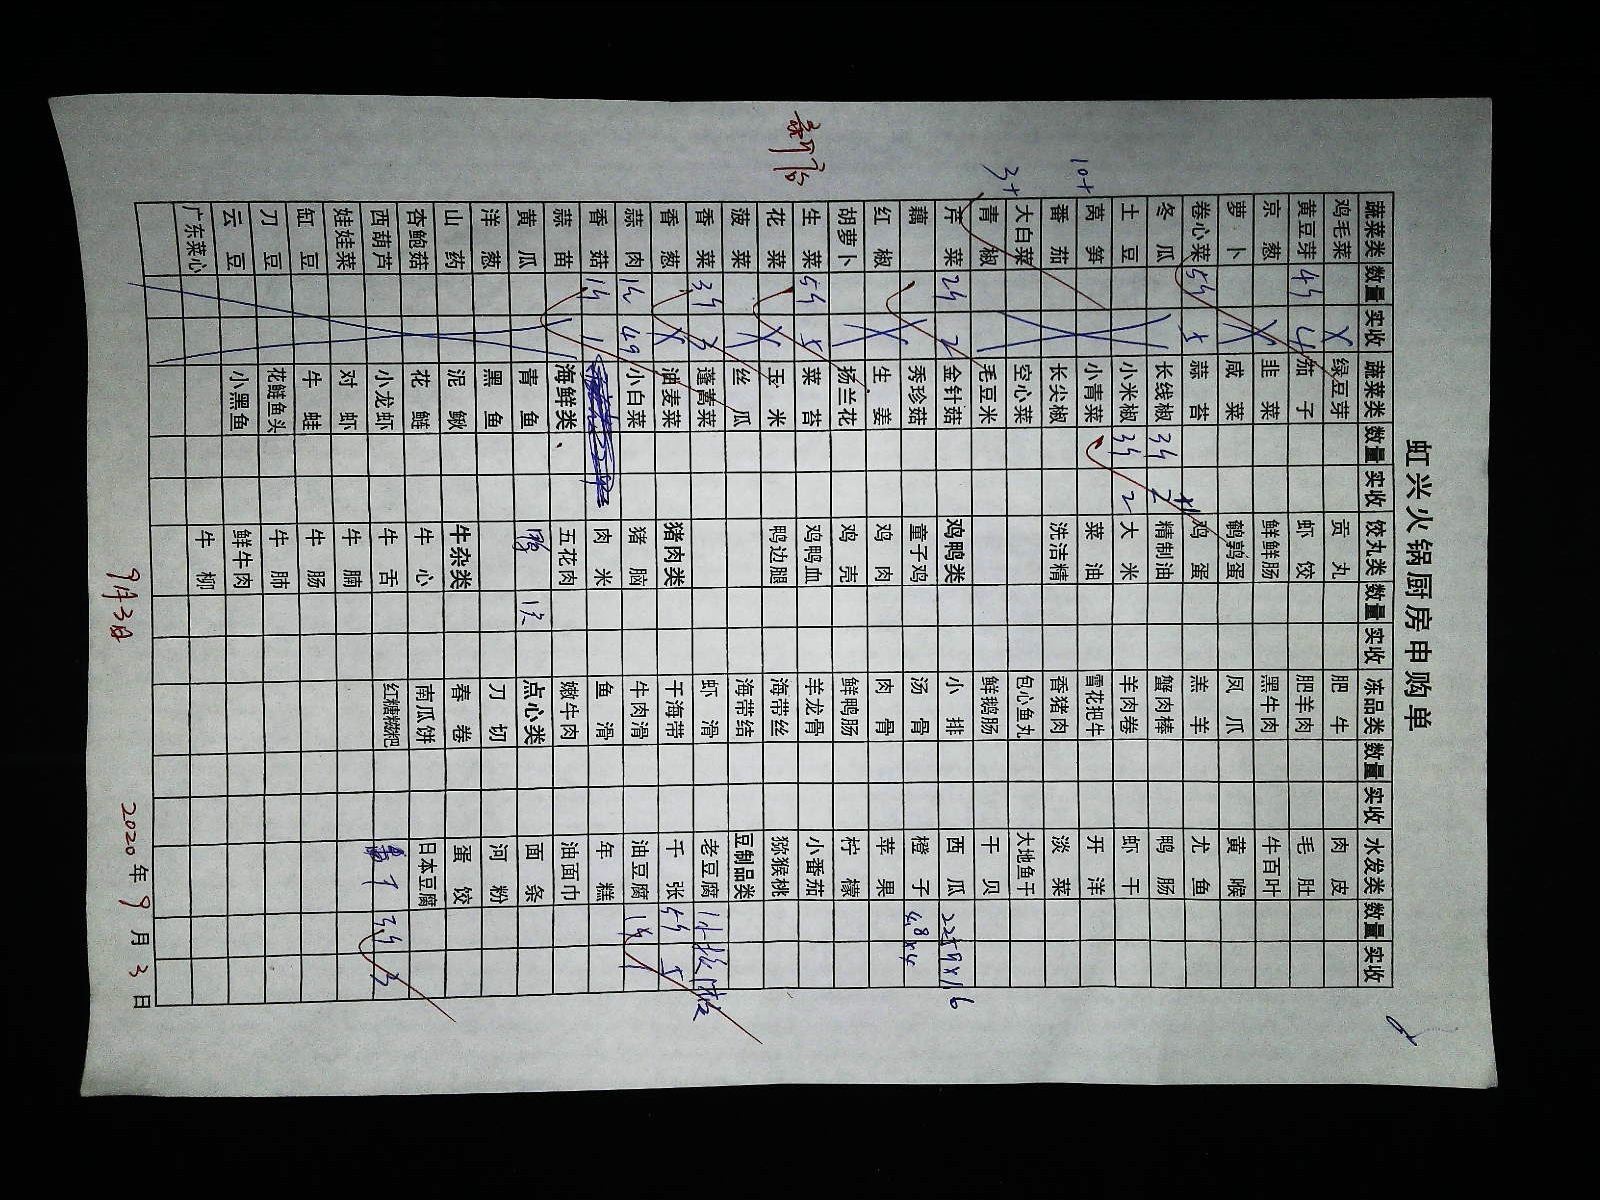 虹兴火锅厨房申购单
蔬菜类 数量 实收 蔬菜类 数量 实收 饺丸类 数量 实收 冻品类 数量 实收 水发类 数量 实收
鸡毛菜 X 绿豆芽 贡丸 肥牛 肉皮
黄豆芽 4斤 4 茄子 虾饺 肥羊肉 毛肚
京葱 X 韭菜 鲜鲜肠 黑牛肉 牛百叶
萝卜 X 咸菜 鹌鹑蛋 凤爪 黄喉
卷心菜 5斤 5 蒜苔 鸡蛋 羔羊 尤鱼
冬瓜 长线椒 3斤 2 精制油 蟹肉棒 鸭肠
土豆 小米椒 3斤 2 大米 羊肉卷 虾干
10+ 莴笋 小青菜 菜油 雪花把牛 开洋
番茄 长尖椒 洗洁精 香猪肉 淡菜
大白菜 空心菜 包心鱼丸 大地鱼干
3+ 青椒 毛豆米 鲜鹅肠 干贝
芹菜 2斤 2 金针菇 鸡鸭类 小排 西瓜
藕 秀珍菇 童子鸡 汤骨 橙子 4.8x4
红椒 生姜 鸡肉 肉骨 苹果
胡萝卜 扬兰花 鸡壳 鲜鸭肠 柠檬
生菜 5斤 5 菜苔 鸡鸭血 羊龙骨 小番茄
新店
花菜 X 玉米 鸭边腿 海带丝 猕猴桃
菠菜 X 丝瓜 海带结 豆制品类
香菜 3斤 3 蓬蒿菜 虾滑 老豆腐
香葱 X 油麦菜 猪肉类 干海带 千张 5斤 5
蒜肉 小白菜 猪脑 牛肉滑 油豆腐 1斤 1
香菇 1斤 1 肉米 鱼滑 年糕
蒜苗 海鲜类、 五花肉 嫩牛肉 油面巾
黄瓜 青鱼 点心类 面条
洋葱 黑鱼 刀切 河粉
山药 泥鳅 牛杂类 春卷 蛋饺
杏鲍菇 花鲢 牛心 南瓜饼 日本豆腐
西葫芦 小龙虾 牛舌 红糖糍粑 3斤 3
娃娃菜 对虾 牛腩
缸豆 牛蛙 牛肠
刀豆 花鲢鱼头 牛肺
云豆 小黑鱼 鲜牛肉
广东菜心 牛柳
9月3日 2020年9月3日